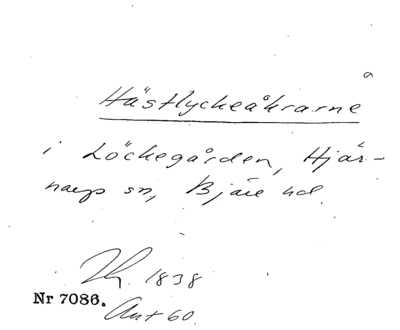 a
Hästlyckeåkrarne
i Löckegården, Hjär-
narp sn, Bjäre hd.
1838
Nr 7086.
Ant 60.